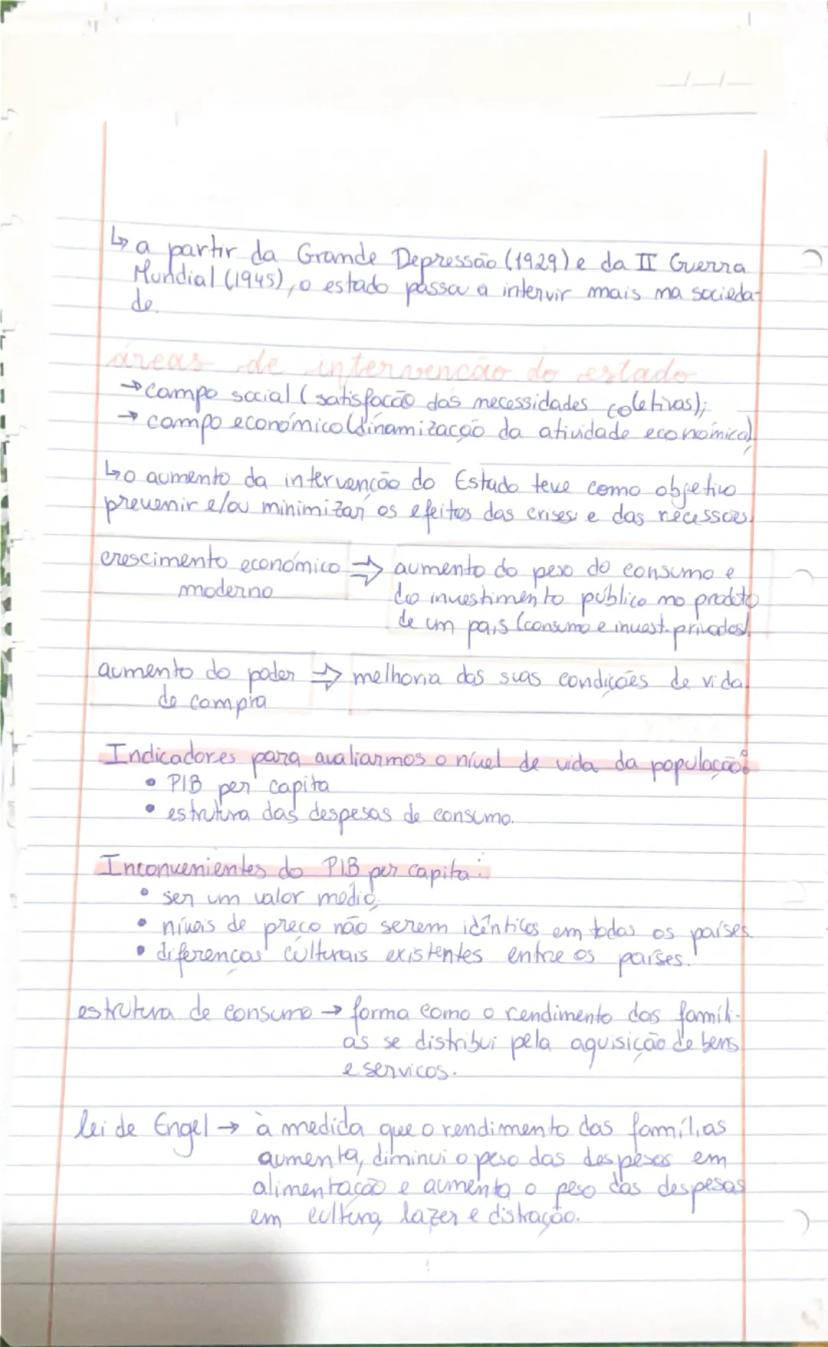 ↳ a partir da Grande Depressão (1929) e da II Guerra
Mundial (1945), o estado passa a intervir mais na socieda-
de.
áreas de intervenção do estado
→ campo social (satisfação das necessidades coletivas);
→ campo económico (dinamização da atividade económica).
↳ o aumento da intervenção do Estado teve como objetivo
prevenir e/ou minimizar os efeitos das crises e das recessões.
crescimento económico ⇒ aumento do peso do consumo e
moderno do investimento público no produto
de um país (consumo e invest. privados)
aumento do poder ⇒ melhoria das suas condições de vida
de compra
Indicadores para avaliarmos o nível de vida da população:
• PIB per capita
• estrutura das despesas de consumo.
Inconvenientes do PIB per capita:
• ser um valor médio
• níveis de preço não serem idênticos em todos os países
• diferenças culturais existentes entre os países.
estrutura de consumo → forma como o rendimento das famíli-
as se distribui pela aquisição de bens
e serviços.
lei de Engel → à medida que o rendimento das famílias
aumenta, diminui o peso das despesas em
alimentação e aumenta o peso das despesas
em cultura, lazer e distração.